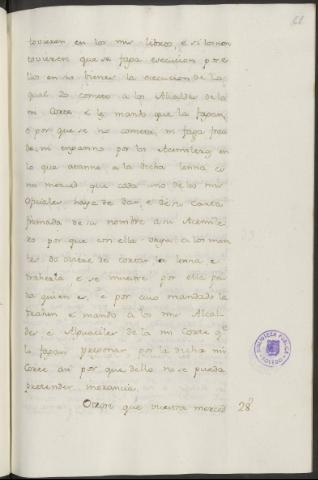 tovieren en los mis libros, e si lo non
tovieren que se faga execucion por e
llo en sus bienes la execucion de la
qual yo cometo a los Alcaldes de la
mi Corte e le mando que la fagan,
e por que se no cometa ni faga frau
de ni enganno por los Acemileros en
lo que atanne a la dicha lenna es
mi merced que cada uno de los mis
oficiales haya de dar e de su carta
firmada de su nombre a su Acemile
ro por que con ella vaya a los mon
tes do oviere de cortar la lenna e
traherla e se muestre por ella
quien es, e por cuio mandado la
trahen e mando a los mis Alcal
des e Alguaciles de la mi Corte que
lo fagan pregonar por la dicha mi
Corte asi por que dello no se pueda
pretender ignorancia
Otrosi que vuestra merced 28
BIBLIOTECA PUBLICA
TOLEDO